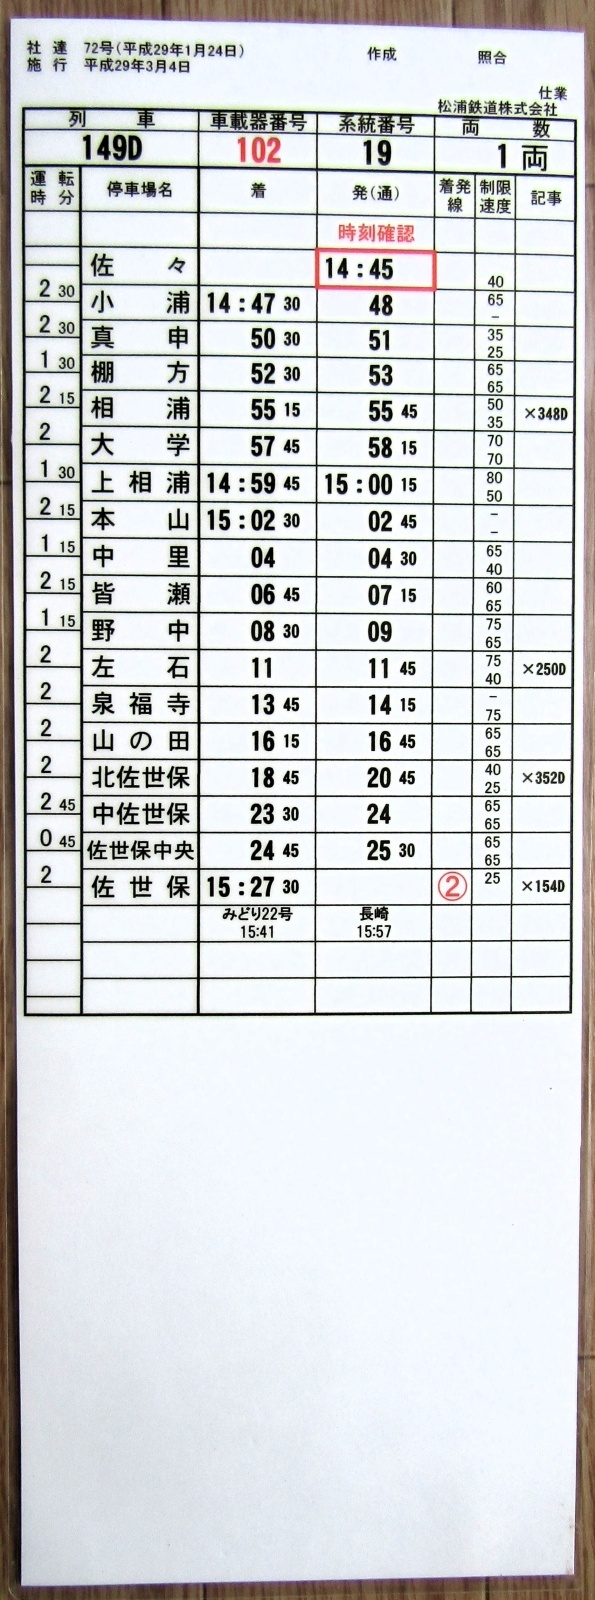 社達 72号(平成29年1月24日) 作成 照合
施行 平成29年3月4日
仕業
松浦鉄道株式会社
列車 車載器番号 系統番号 両数
149D 102 19 1両
運転時分 停車場名 着 発(通) 着発線 制限速度 記事
時刻確認
佐々 14:45 40
2 30
小浦 14:47 30 48 65 -
2 30
真申 50 30 51 35 25
1 30
棚方 52 30 53 65 65
2 15
相浦 55 15 55 45 50 35 ×348D
2
大学 57 45 58 15 70 70
1 30
上相浦 14:59 45 15:00 15 80 50
2 15
本山 15:02 30 02 45 - -
1 15
中里 04 04 30 65 40
2 15
皆瀬 06 45 07 15 60 65
1 15
野中 08 30 09 75 65
2
左石 11 11 45 75 40 ×250D
2
泉福寺 13 45 14 15 - 75
2
山の田 16 15 16 45 65 65
2
北佐世保 18 45 20 45 40 25 ×352D
2 45
中佐世保 23 30 24 65 65
0 45
佐世保中央 24 45 25 30 65 65
2
佐世保 15:27 30 ② 25 ×154D
みどり22号 長崎
15:41 15:57